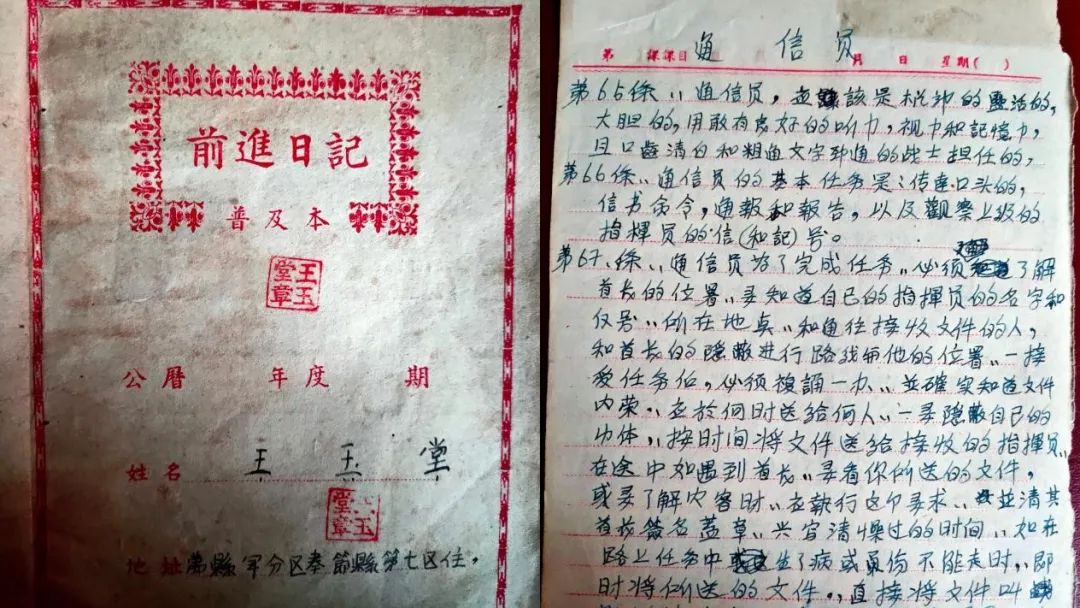 前進日記
普及本
王玉堂章
公曆 年度 期
姓名 王玉堂
王玉堂章
地址 萬縣軍分区奉節縣第七区住,
第 課課目 通信员 月 日 星期( )
第65条、通信员,应該是机动的灵活的,
大胆的,用敢有良好的听力,視力和記憶力,
且口齒清白和粗通文字的战士担任的,
第66条、通信员的基本任务是:传達口头的,
信书命令,通報和報告,以及觀察上级的
指揮员的信(和記)号。
第67条、通信员为了完成任务,必须了解
首长的位置、要知道自己的指揮员的名字和
仅号、所在地点、和通往接收文件的人,
和首长的隐蔽進行路线和他的位署、一接
受任务后,必须複誦一力、並確实知道文件
内荣、应於何时送給何人、一要隐蔽自己的
力体、按时间将文件送給接收的指揮员、
在途中如遇到首长、要看你所送的文件,
或要了解内容时、应執行这个要求、並清其
首长簽名蓋章、兴容清楚过的时间、如在
路上任务中生了病或負伤不能走时、即
时将所送的文件、直接将文件叫